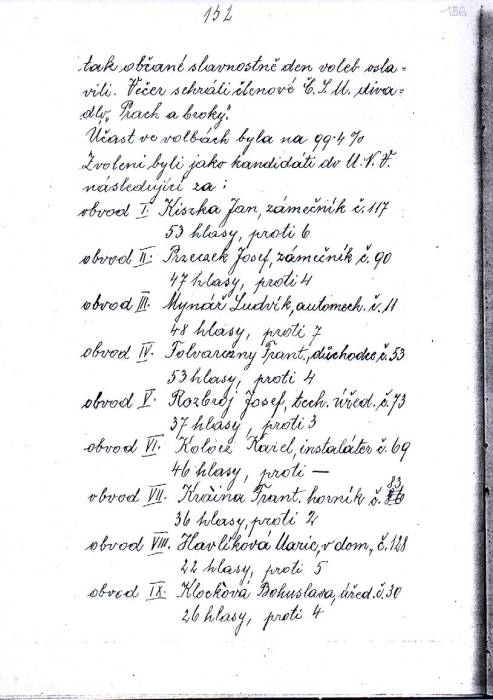 152
156
tak občané slavnostně den voleb osla=
vili. Večer sehráli členové Č.S.M. diva=
dlo „Prach a broky“.
Účast ve volbách byla na 99·4%
Zvoleni byli jako kandidáti do M.N.V.
následující za:
obvod I. Kiszka Jan, zámečník č. 117
53 hlasy, proti 6
obvod II. Przeczek Josef, zámečník č. 90
47 hlasy, proti 4
obvod III. Mynář Ludvík, automech. č. 11
48 hlasy, proti 7
obvod IV. Folvarczny Frant., důchodec č. 53
53 hlasy, proti 4
obvod V. Rozbroj Josef, tech. úřed. č. 73
37 hlasy, proti 3
obvod VI. Kolocz Karel, instalatér č. 69
46 hlasy, proti —
obvod VII. Kraina Frant. horník č. 83
36 hlasy, proti 2
obvod VIII. Havlíková Marie, v dom., č. 128
22 hlasy, proti 5
obvod IX. Klocková Bohuslava, úřed. č. 30
26 hlasy, proti 4